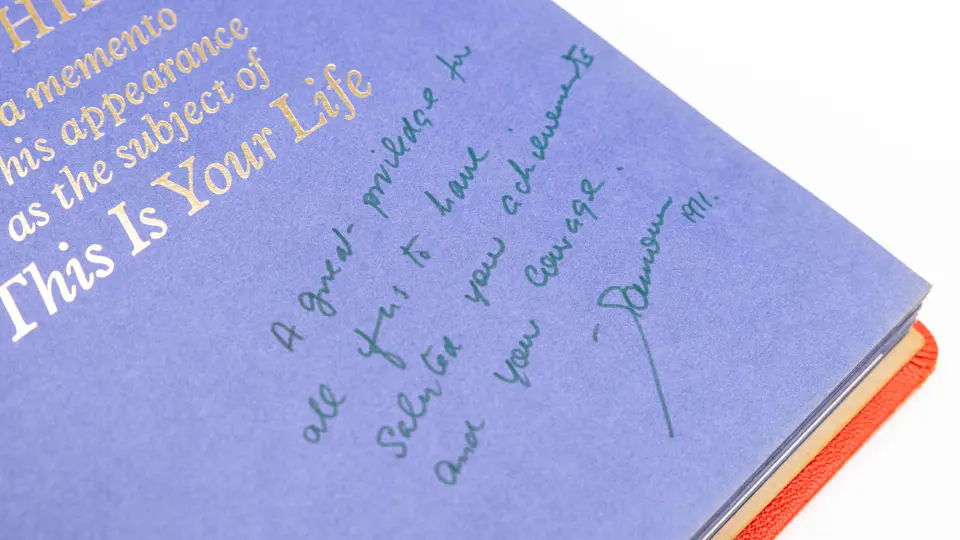 HI
a memento
his appearance
as the subject of
This Is Your Life
A great privilege for
all of us to have
saluted your achievements
and your courage.
1971.